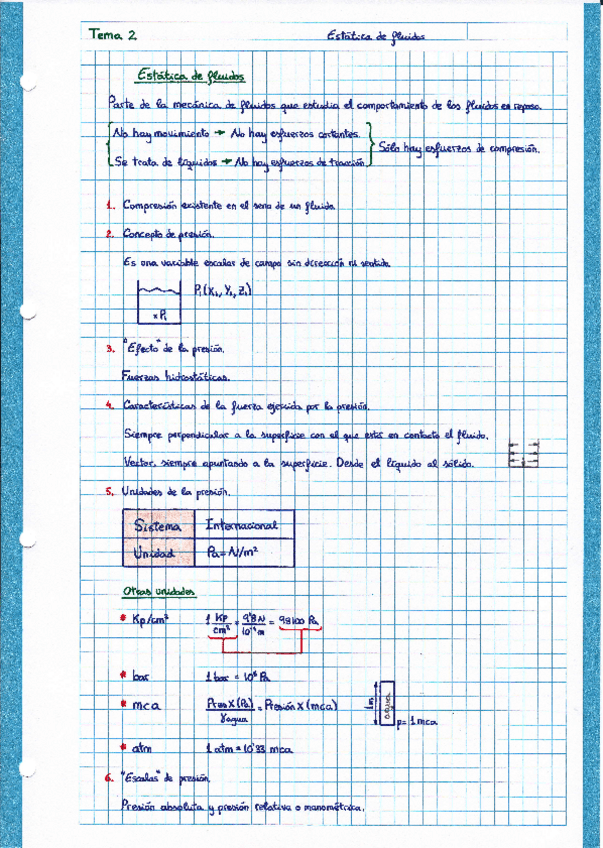 Tema 2 Estática de fluidos
Estática de fluidos
Parte de la mecánica de fluidos que estudia el comportamiento de los fluidos en reposo.
No hay movimiento → No hay esfuerzos cortantes.
Se trata de líquidos → No hay esfuerzos de tracción
Sólo hay esfuerzos de compresión.
1. Compresión existente en el seno de un fluido.
2. Concepto de presión.
Es una variable escalar de campo sin dirección ni sentido.
P₁(X₁, Y₁, Z₁)
x P₁
3. "Efecto" de la presión.
Fuerzas hidrostáticas.
4. Características de la fuerza ejercida por la presión.
Siempre perpendicular a la superficie con el que está en contacto el fluido.
Vector, siempre apuntando a la superficie. Desde el líquido al sólido.
5. Unidades de la presión.
Sistema Internacional
Unidad Pa = N/m²
Otras unidades
* Kp/cm² 1 Kp/cm² = 9'8 N/10⁻⁴ m = 98100 Pa
* bar 1 bar =
* mca X (Pa)/γagua = Presión X (mca)
1m
agua
p= 1 mca
* atm 1 atm = 10'33 mca
6. "Escalas" de presión.
Presión absoluta y presión relativa o manométrica.